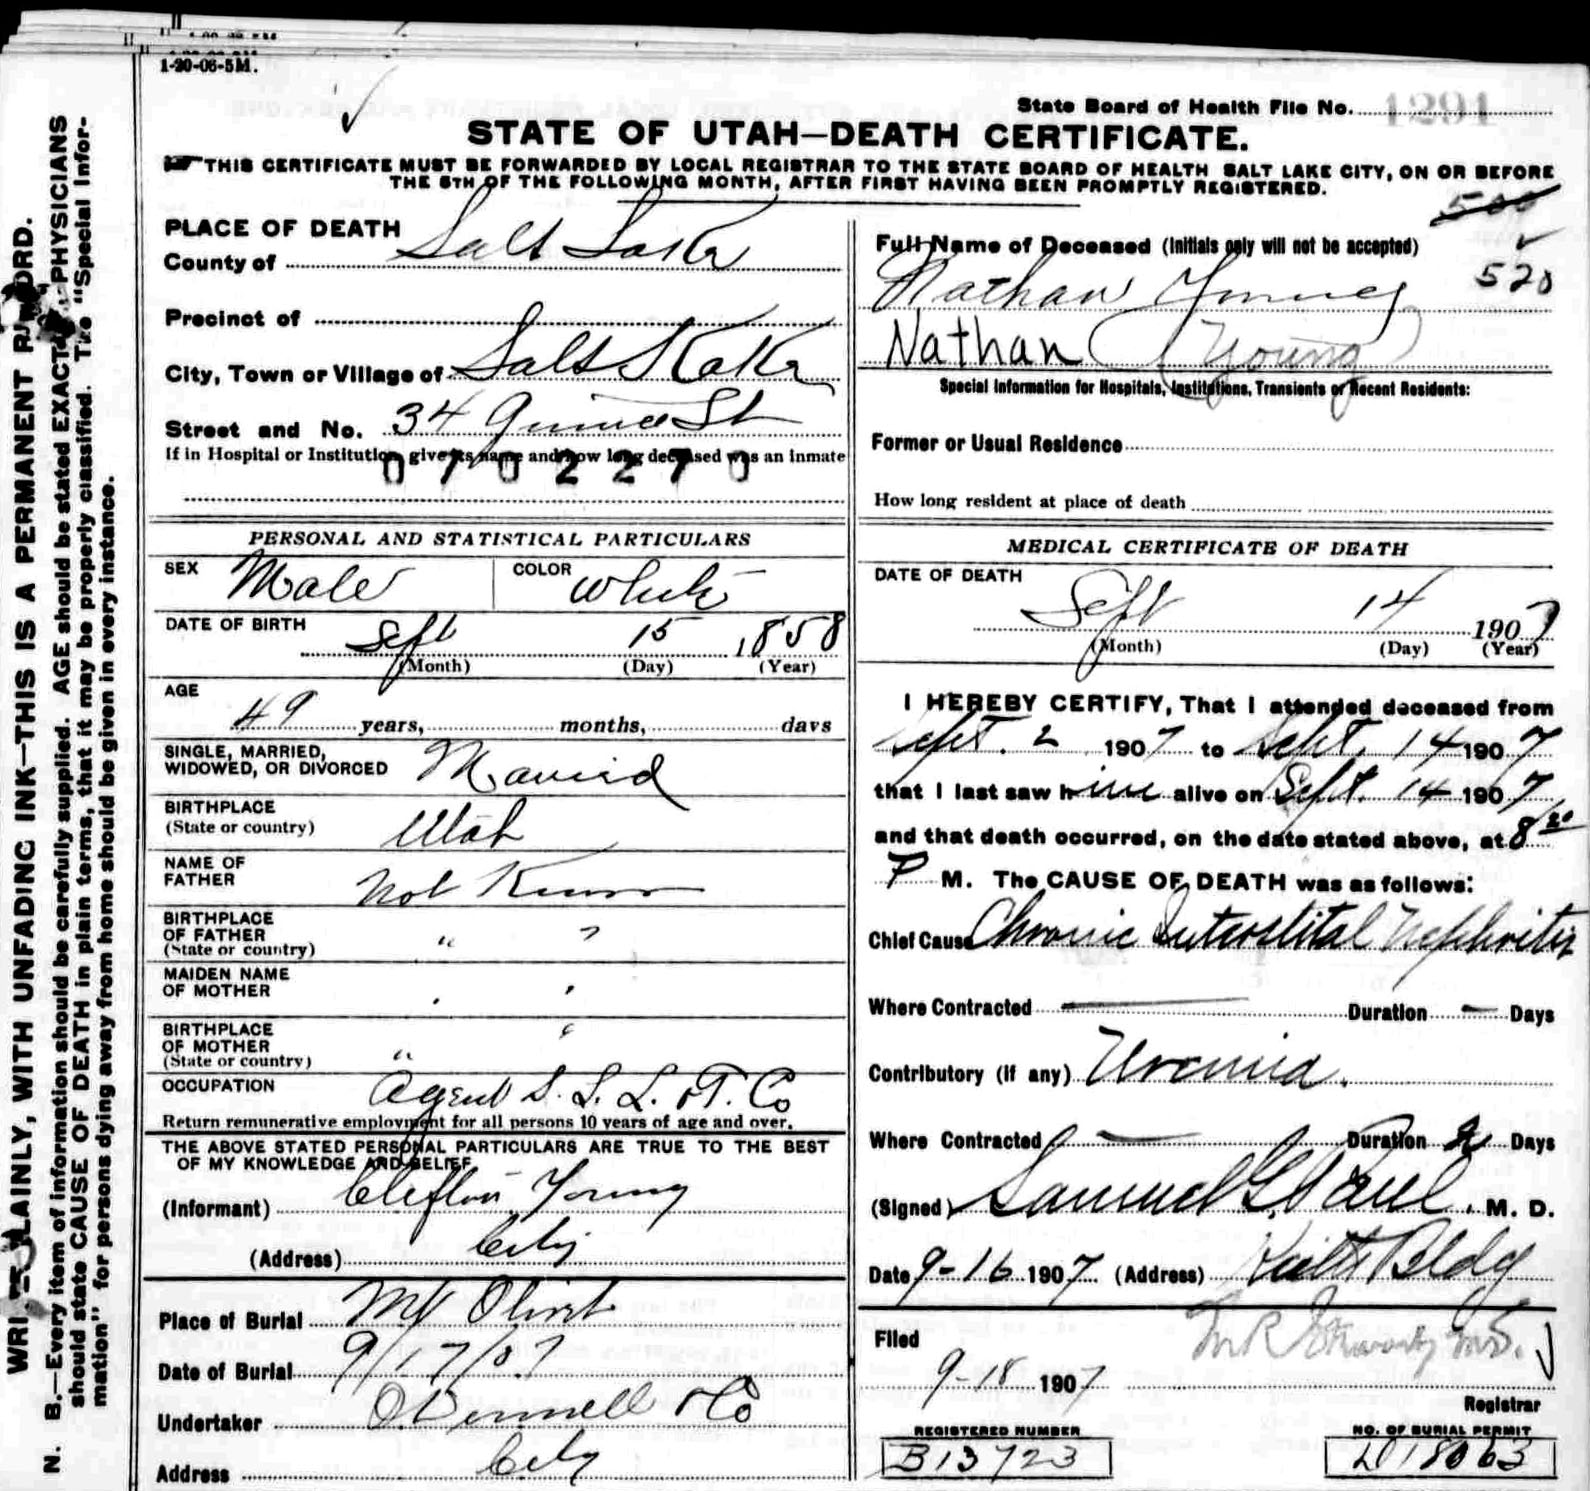 1-20-06-5M.
State Board of Health File No. 1291
STATE OF UTAH—DEATH CERTIFICATE.
THIS CERTIFICATE MUST BE FORWARDED BY LOCAL REGISTRAR TO THE STATE BOARD OF HEALTH SALT LAKE CITY, ON OR BEFORE
THE 5TH OF THE FOLLOWING MONTH, AFTER FIRST HAVING BEEN PROMPTLY REGISTERED.
PLACE OF DEATH
County of Salt Lake
Precinct of
City, Town or Village of Salt Lake
Street and No. 34 St
If in Hospital or Institution, give its name and how long deceased was an inmate
0702270
500
Full Name of Deceased (Initials only will not be accepted)
520
Nathan Young
Nathan (Young)
Special Information for Hospitals, Institutions, Transients or Recent Residents:
Former or Usual Residence
How long resident at place of death
PERSONAL AND STATISTICAL PARTICULARS
SEX Male COLOR White
DATE OF BIRTH Sept 15 1858
(Month) (Day) (Year)
AGE
49 years, months, days
SINGLE, MARRIED,
WIDOWED, OR DIVORCED Married
BIRTHPLACE
(State or country) Utah
NAME OF
FATHER Not Known
BIRTHPLACE
OF FATHER " "
(State or country)
MAIDEN NAME
OF MOTHER
BIRTHPLACE
OF MOTHER
(State or country) "
OCCUPATION Agent S. L. L. & T. Co
Return remunerative employment for all persons 10 years of age and over.
THE ABOVE STATED PERSONAL PARTICULARS ARE TRUE TO THE BEST
OF MY KNOWLEDGE AND BELIEF
(Informant) Clifton Young
(Address) City
Place of Burial Mt Olivet
Date of Burial 9/17/07
Undertaker O'Donnell & Co
Address City
MEDICAL CERTIFICATE OF DEATH
DATE OF DEATH
Sept 14 1907
(Month) (Day) (Year)
I HEREBY CERTIFY, That I attended deceased from
Sept. 2 1907 to Sept. 14 1907
that I last saw him alive on Sept. 14 1907
and that death occurred, on the date stated above, at 8/20
P M. The CAUSE OF DEATH was as follows:
Chief Cause Chronic Interstitial Nephritis
Where Contracted — Duration — Days
Contributory (if any) Uremia.
Where Contracted — Duration 2 Days
(Signed) Samuel G. Paul, M. D.
Date 9-16 1907 (Address) Keith Bldg
Filed
9-18 1907
Registrar
REGISTERED NUMBER
B13723
NO. OF BURIAL PERMIT
D18063
PLAINLY, WITH UNFADING INK—THIS IS A PERMANENT
N. B.—Every item of information should be carefully supplied. AGE should be stated EXACTLY. PHYSICIANS
should state CAUSE OF DEATH in plain terms, that it may be properly classified. The "Special Infor-
mation" for persons dying away from home should be given in every instance.